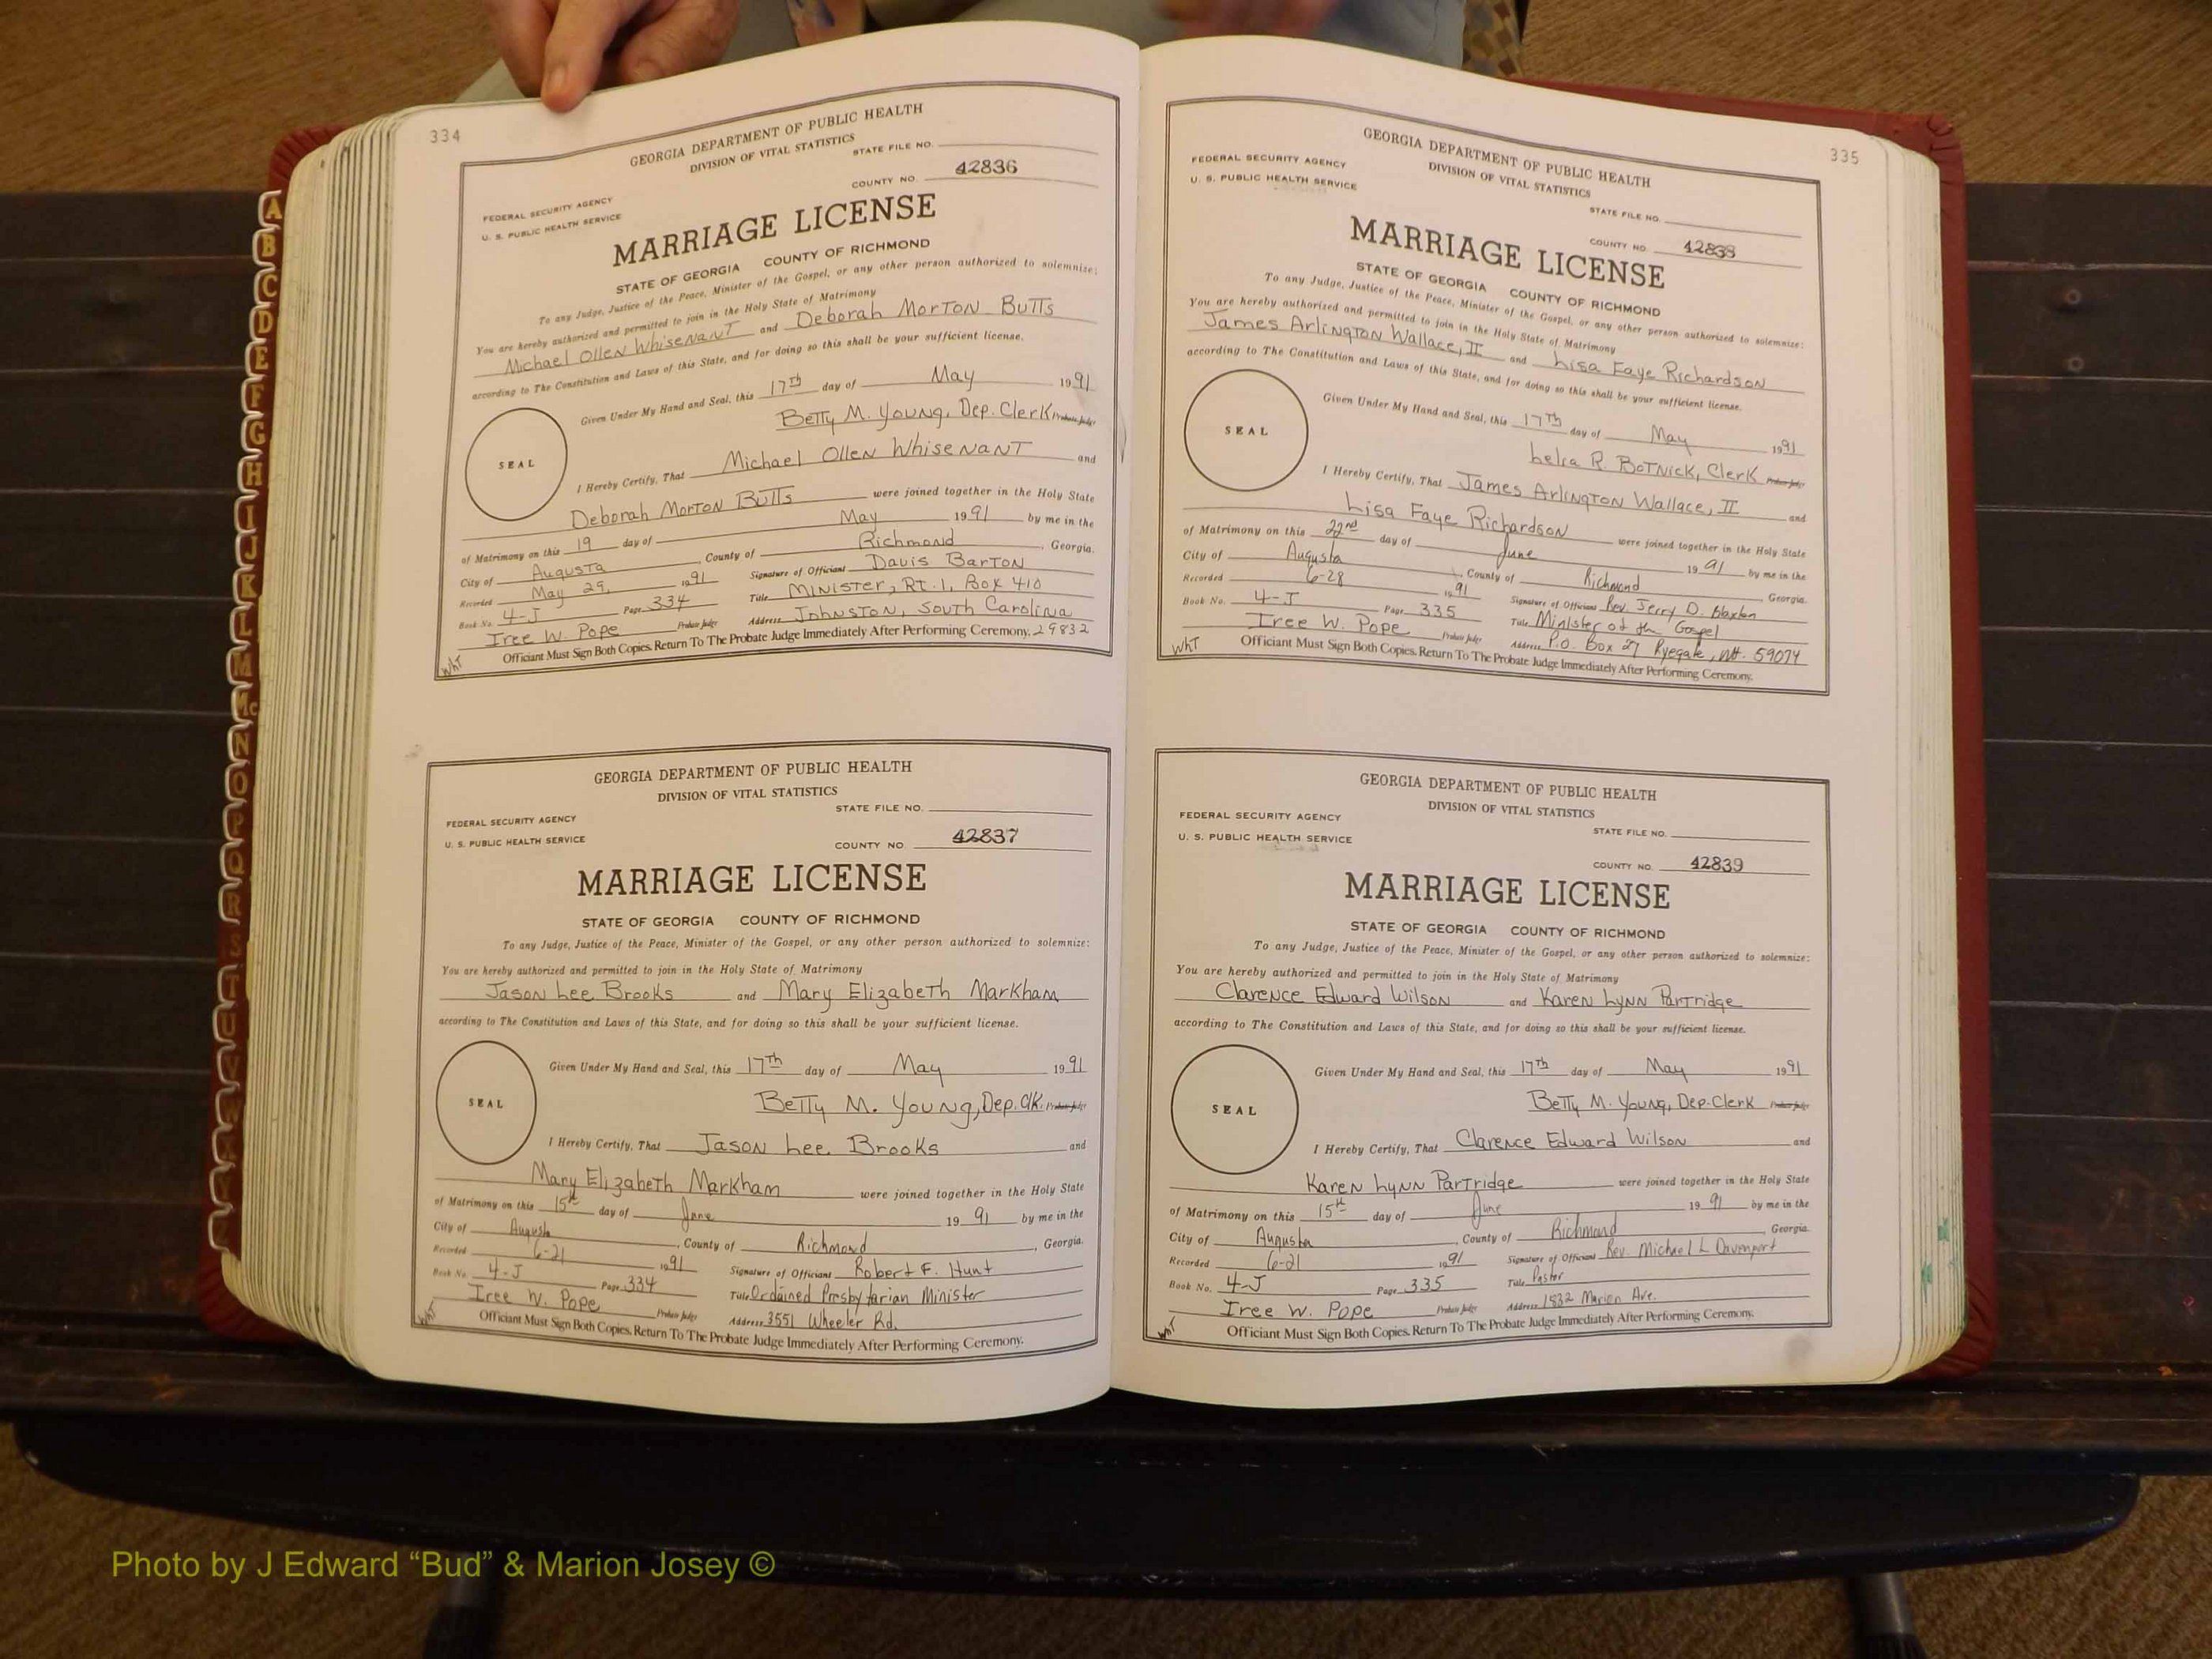 334
GEORGIA DEPARTMENT OF PUBLIC HEALTH
DIVISION OF VITAL STATISTICS
STATE FILE NO.
COUNTY NO. 42836
FEDERAL SECURITY AGENCY
U. S. PUBLIC HEALTH SERVICE
MARRIAGE LICENSE
STATE OF GEORGIA COUNTY OF RICHMOND
To any Judge, Justice of the Peace, Minister of the Gospel, or any other person authorized to solemnize:
You are hereby authorized and permitted to join in the Holy State of Matrimony
Michael Ollen Whisenant and Deborah Morton Butts
according to The Constitution and Laws of this State, and for doing so this shall be your sufficient license.
Given Under My Hand and Seal, this 17th day of May 1991
Betty M. Young, Dep. Clerk Probate Judge
SEAL
I Hereby Certify, That Michael Ollen Whisenant and
Deborah Morton Butts were joined together in the Holy State
of Matrimony on this 19 day of May 1991 by me in the
City of Augusta County of Richmond, Georgia.
Recorded May 29, 1991 Signature of Officiant Davis Barton
Book No. 4-J Page 334 Title Minister, Rt. 1, Box 410
Iree W. Pope Probate Judge Address Johnston, South Carolina 29832
Officiant Must Sign Both Copies. Return To The Probate Judge Immediately After Performing Ceremony.
WHT
GEORGIA DEPARTMENT OF PUBLIC HEALTH
DIVISION OF VITAL STATISTICS
STATE FILE NO.
FEDERAL SECURITY AGENCY
U. S. PUBLIC HEALTH SERVICE
COUNTY NO 42837
MARRIAGE LICENSE
STATE OF GEORGIA COUNTY OF RICHMOND
To any Judge, Justice of the Peace, Minister of the Gospel, or any other person authorized to solemnize:
You are hereby authorized and permitted to join in the Holy State of Matrimony
Jason Lee Brooks and Mary Elizabeth Markham
according to The Constitution and Laws of this State, and for doing so this shall be your sufficient license.
Given Under My Hand and Seal, this 17th day of May 1991
Betty M. Young, Dep. Clk. Probate Judge
SEAL
I Hereby Certify, That Jason Lee Brooks and
Mary Elizabeth Markham were joined together in the Holy State
of Matrimony on this 15th day of June 1991 by me in the
City of Augusta, County of Richmond, Georgia.
Recorded 6-21 1991 Signature of Officiant Robert F. Hunt
Book No. 4-J Page 334 Title Ordained Presbytarian Minister
Iree W. Pope Probate Judge Address 3551 Wheeler Rd.
Officiant Must Sign Both Copies. Return To The Probate Judge Immediately After Performing Ceremony.
WHT
335
GEORGIA DEPARTMENT OF PUBLIC HEALTH
DIVISION OF VITAL STATISTICS
FEDERAL SECURITY AGENCY
U. S. PUBLIC HEALTH SERVICE
STATE FILE NO.
COUNTY NO. 42838
MARRIAGE LICENSE
STATE OF GEORGIA COUNTY OF RICHMOND
To any Judge, Justice of the Peace, Minister of the Gospel, or any other person authorized to solemnize:
You are hereby authorized and permitted to join in the Holy State of Matrimony
James Arlington Wallace, II and Lisa Faye Richardson
according to The Constitution and Laws of this State, and for doing so this shall be your sufficient license.
Given Under My Hand and Seal, this 17th day of May 1991
R. Botnick, Clerk Probate Judge
SEAL
I Hereby Certify, That James Arlington Wallace, II and
Lisa Faye Richardson were joined together in the Holy State
of Matrimony on this 22nd day of June 1991 by me in the
City of Augusta, County of Richmond Georgia.
Recorded 6-28 1991 Signature of Officiant Rev. Jerry D.
Book No. 4-J Page 335 Title Minister of the Gospel
Iree W. Pope Probate Judge Address P.O. Box 27 Ryegate, Mt. 59074
Officiant Must Sign Both Copies. Return To The Probate Judge Immediately After Performing Ceremony.
WHT
GEORGIA DEPARTMENT OF PUBLIC HEALTH
DIVISION OF VITAL STATISTICS
FEDERAL SECURITY AGENCY
U. S. PUBLIC HEALTH SERVICE
STATE FILE NO.
COUNTY NO. 42839
MARRIAGE LICENSE
STATE OF GEORGIA COUNTY OF RICHMOND
To any Judge, Justice of the Peace, Minister of the Gospel, or any other person authorized to solemnize:
You are hereby authorized and permitted to join in the Holy State of Matrimony
Clarence Edward Wilson and Karen Lynn Partridge
according to The Constitution and Laws of this State, and for doing so this shall be your sufficient license.
Given Under My Hand and Seal, this 17th day of May 1991
Betty M. Young, Dep. Clerk Probate Judge
SEAL
I Hereby Certify, That Clarence Edward Wilson and
Karen Lynn Partridge were joined together in the Holy State
of Matrimony on this 15th day of June 1991 by me in the
City of Augusta, County of Richmond, Georgia.
Recorded 6-21 1991 Signature of Officiant Rev. Michael L Davenport
Book No. 4-J Page 335 Title Pastor
Iree W. Pope Probate Judge Address 1832 Marion Ave.
Officiant Must Sign Both Copies. Return To The Probate Judge Immediately After Performing Ceremony.
WHT
A
B
C
D
E
F
G
H
I
J
K
L
M
Mc
N
O
P
Q
R
S
T
U
V
W
Photo by J Edward “Bud” & Marion Josey ©